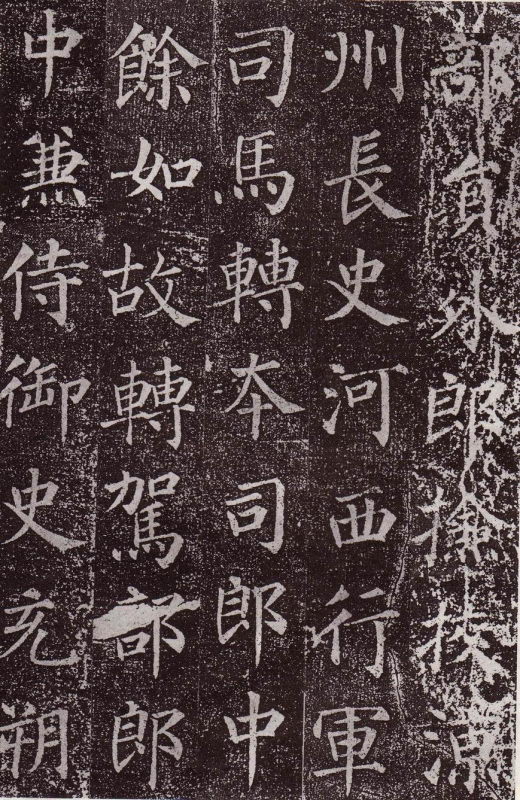 部員外郎撿挍涼
州長史河西行軍
司馬轉本司郎中
餘如故轉駕部郎
中兼侍御史充朔